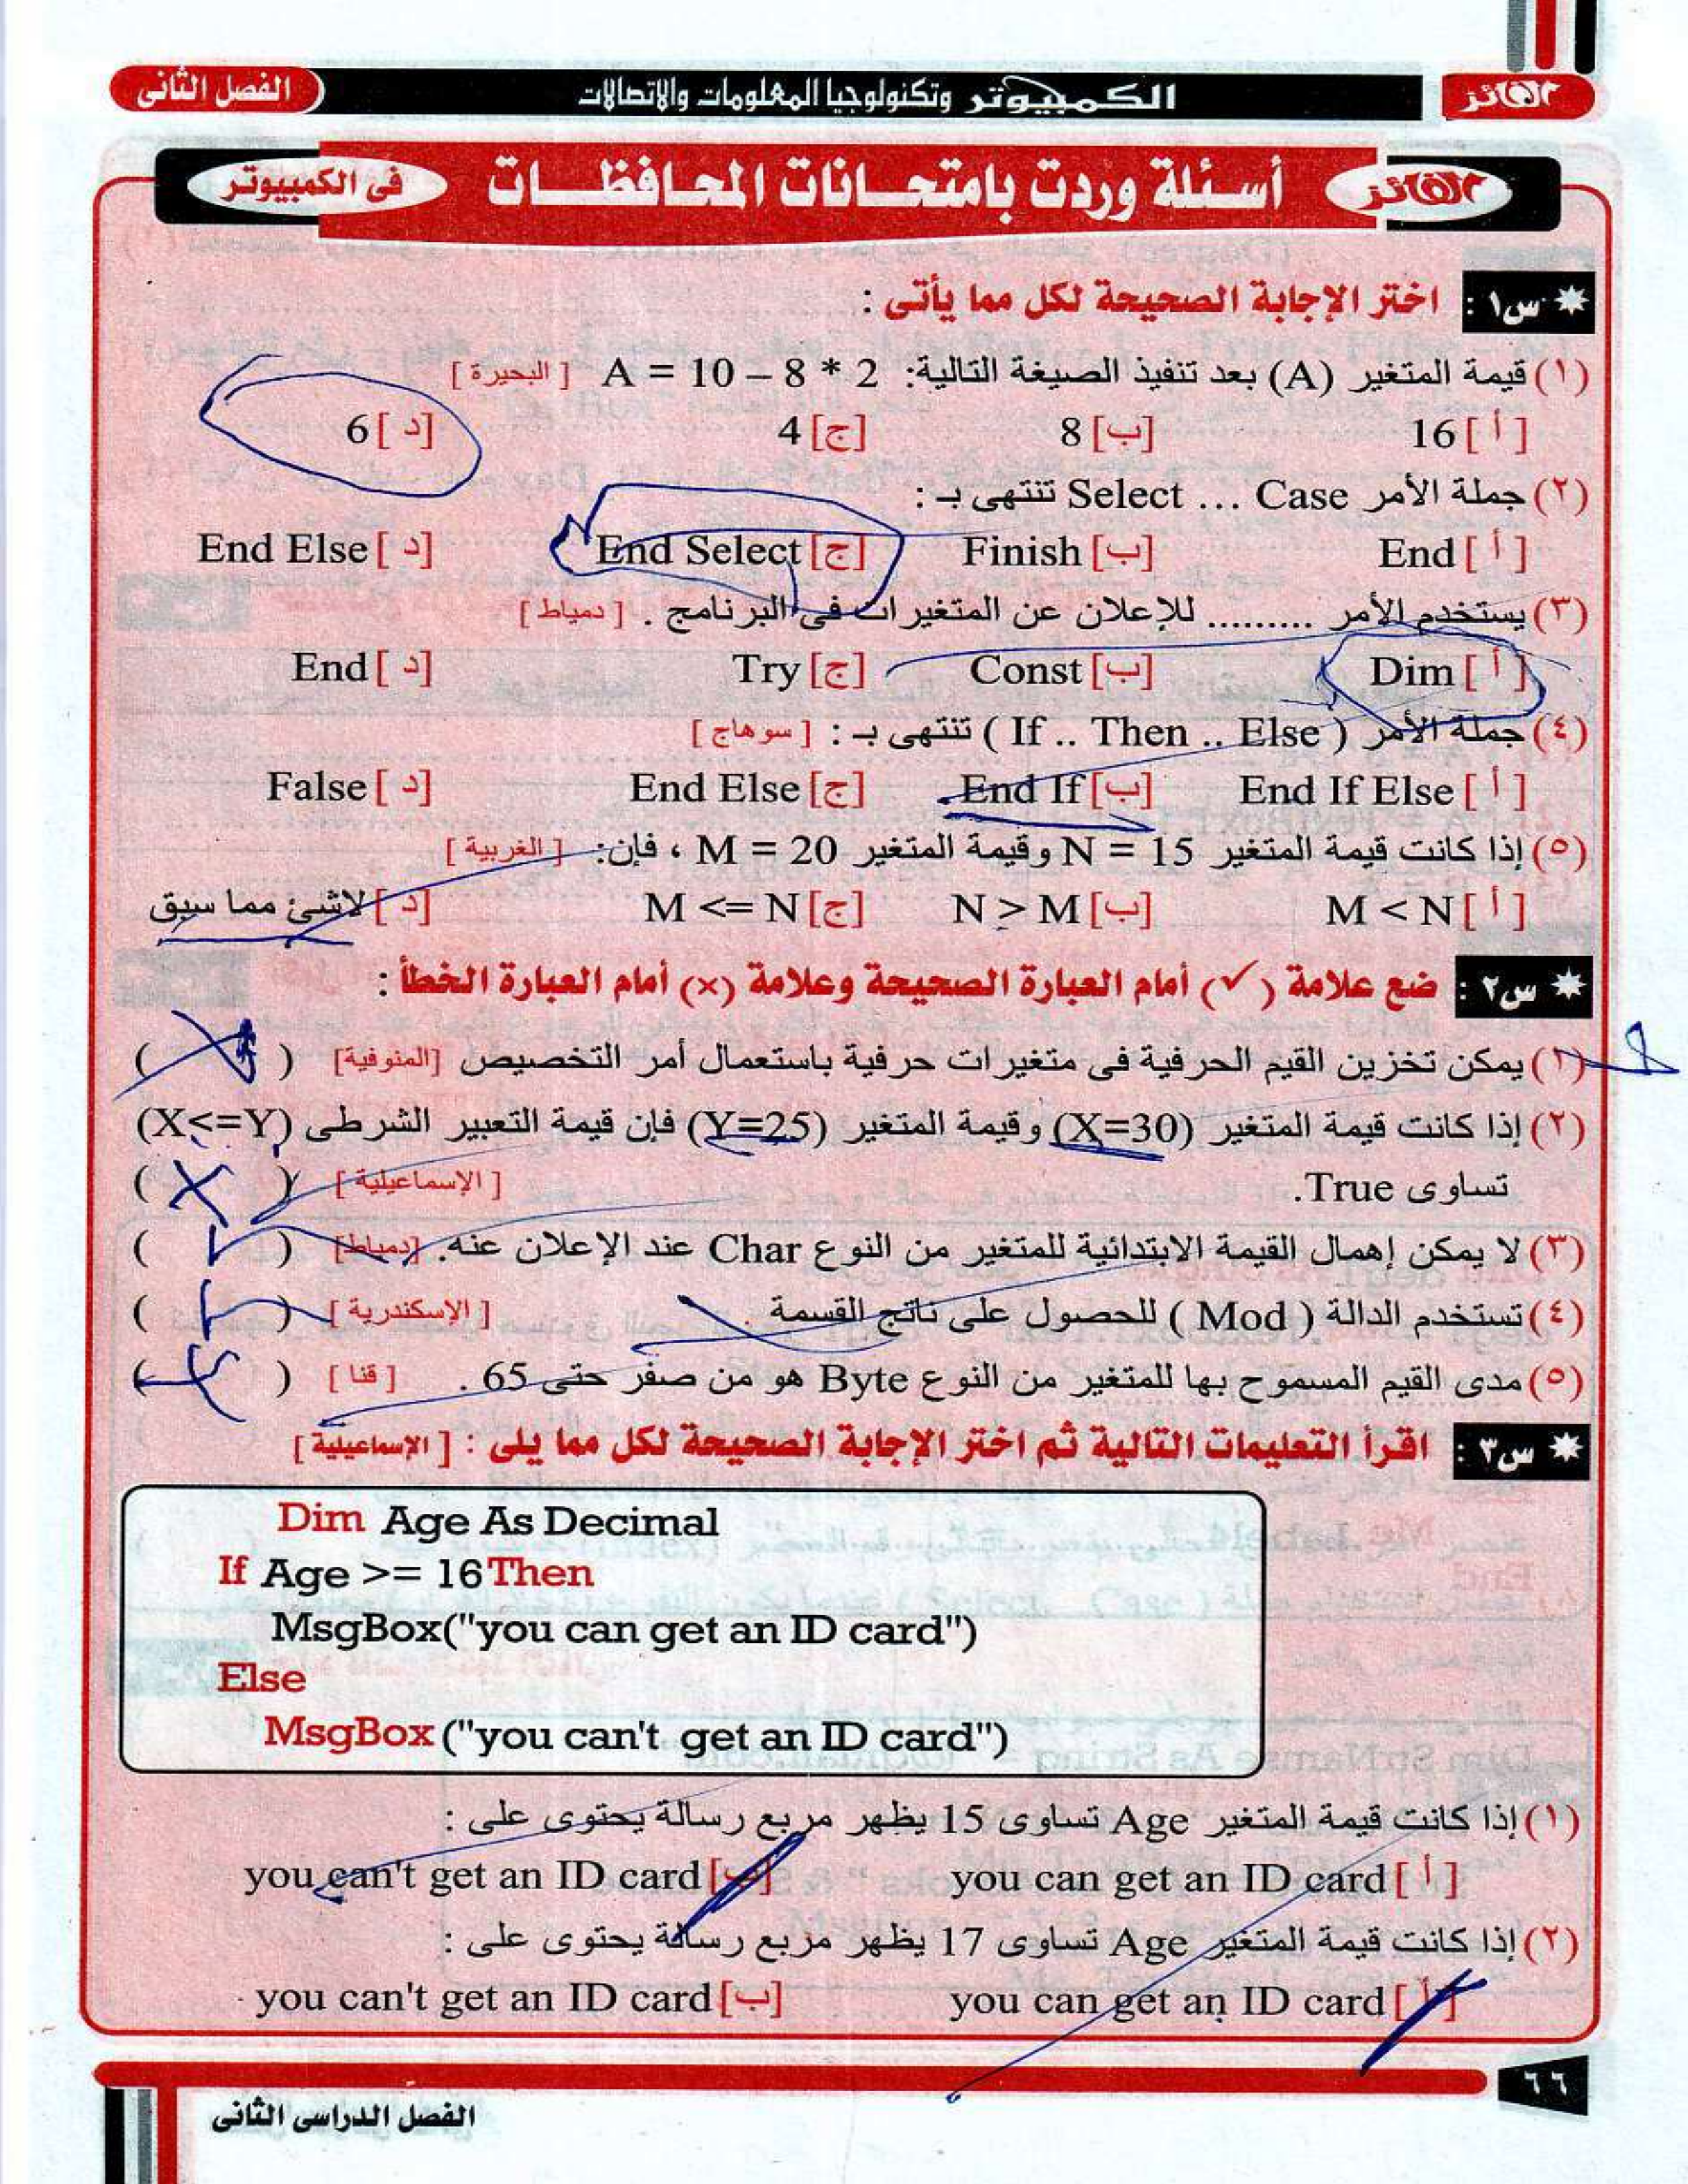 الفائز
الكمبيوتر وتكنولوجيا المعلومات والاتصالات
الفصل الثانى
الفائز
أسئلة وردت بامتحانات المحافظات
فى الكمبيوتر
س١ : اختر الإجابة الصحيحة لكل مما يأتى :
(١) قيمة المتغير (A) بعد تنفيذ الصيغة التالية: A = 10 – 8 * 2 [ البحيرة ]
[ أ ] 16 [ب] 8 [ج] 4 [ د] 6
(٢) جملة الأمر Select … Case تنتهى بـ :
[ أ ] End [ب] Finish [ج] End Select [ د] End Else
(٣) يستخدم الأمر ......... للإعلان عن المتغيرات فى البرنامج . [ دمياط ]
[ أ ] Dim [ب] Const [ج] Try [ د] End
(٤) جملة الأمر ( If .. Then .. Else ) تنتهى بـ : [ سوهاج ]
[ أ ] End If Else [ب] End If [ج] End Else [ د] False
(٥) إذا كانت قيمة المتغير N = 15 وقيمة المتغير M = 20 ، فإن: [ الغربية ]
[ أ ] M < N [ب] N > M [ج] M <= N [ د] لاشئ مما سبق
س٢ : ضع علامة (✓) أمام العبارة الصحيحة وعلامة (×) أمام العبارة الخطأ :
(١) يمكن تخزين القيم الحرفية فى متغيرات حرفية باستعمال أمر التخصيص [المنوفية] ( )
(٢) إذا كانت قيمة المتغير (X=30) وقيمة المتغير (Y=25) فإن قيمة التعبير الشرطى (X<=Y)
تساوى True. [ الإسماعيلية ] ( X )
(٣) لا يمكن إهمال القيمة الابتدائية للمتغير من النوع Char عند الإعلان عنه. [دمياط] ( ✓ )
(٤) تستخدم الدالة ( Mod ) للحصول على ناتج القسمة . [ الإسكندرية ] ( )
(٥) مدى القيم المسموح بها للمتغير من النوع Byte هو من صفر حتى 65 . [ قنا ] ( )
س٣ : اقرأ التعليمات التالية ثم اختر الإجابة الصحيحة لكل مما يلى : [ الإسماعيلية ]
Dim Age As Decimal
If Age >= 16 Then
MsgBox("you can get an ID card")
Else
MsgBox ("you can't get an ID card")
(١) إذا كانت قيمة المتغير Age تساوى 15 يظهر مربع رسالة يحتوى على :
[ أ ] you can get an ID card [ب] you can't get an ID card
(٢) إذا كانت قيمة المتغير Age تساوى 17 يظهر مربع رسالة يحتوى على :
[ أ ] you can get an ID card [ب] you can't get an ID card
٦٦
الفصل الدراسى الثانى